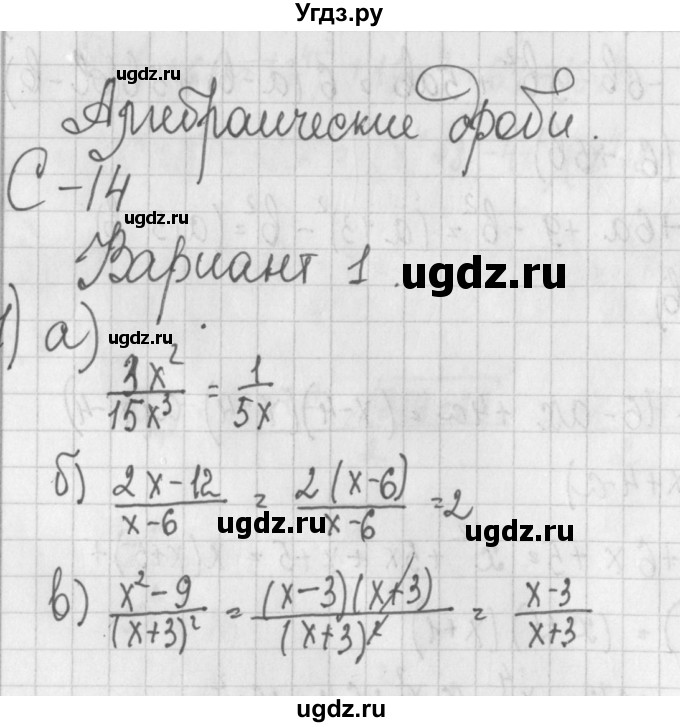 Угдз.ру
ugdz.ru
Алгебраические дроби.
С-14
ugdz.ru
Вариант 1.
ugdz.ru
1) а)
ugdz.ru
3x²/15x³ = 1/5x
б) 2x-12/x-6 = 2(x-6)/x-6 = 2
ugdz.ru
ugdz.ru
в) x²-9/(x+3)² = (x-3)(x+3)/(x+3)² = x-3/x+3
ugdz.ru
ugdz.ru